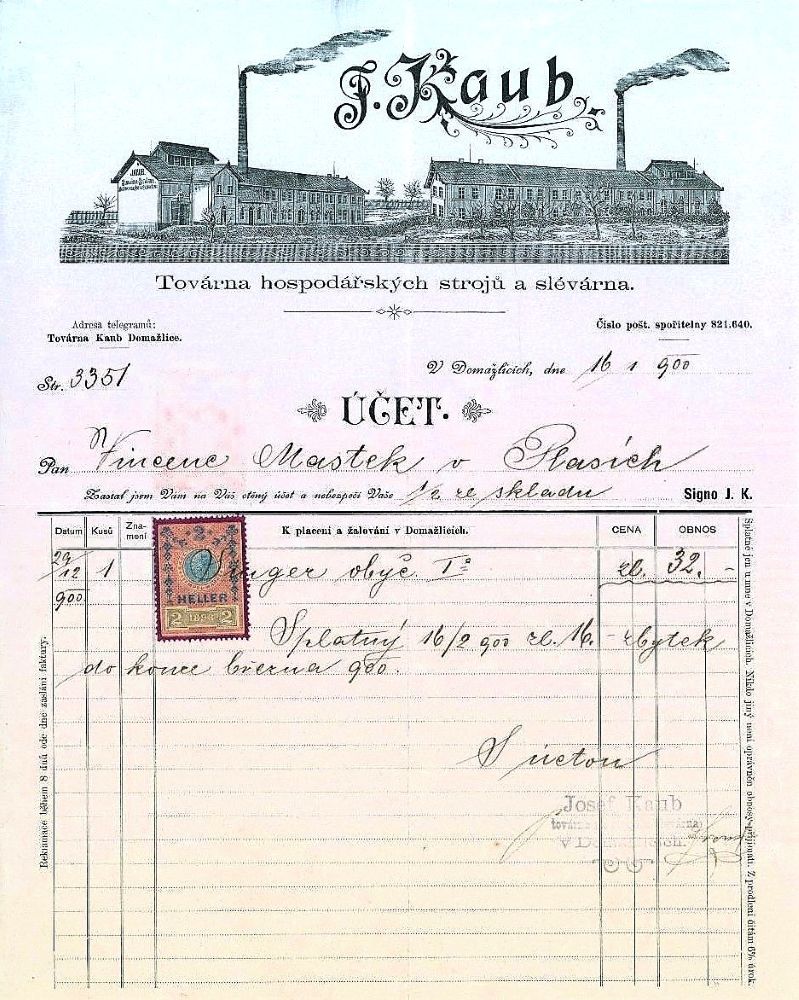 J. Kaub
Továrna hospodářských strojů a slévárna.
Adresa telegramů:
Továrna Kaub Domažlice.
Číslo pošt. spořitelny 821.640.
Str. 3351
V Domažlicích, dne 16/1 900
ÚČET.
Pan Vincenc Mastek v Plasích
Zaslal jsem Vám na Váš ctěný účet a nebezpečí Vaše 1/2 ze skladu
Signo J. K.
Datum Kusů Zna- mení K placení a žalování v Domažlicích. CENA OBNOS
29/12 1 obyč. I° zl. 32. -
900
2
HELLER
2 1898 2
Splatný 16/2 900 zl. 16. - zbytek
do konce března 900.
S úctou
Josef Kaub
V Domažlicích.
Reklamace během 8 dnů ode dne zaslání faktury.
Splatné jen u mne v Domažlicích. Nikdo jiný není oprávněn obnosy přijímati. Z prodlení čítám 6% úrok.